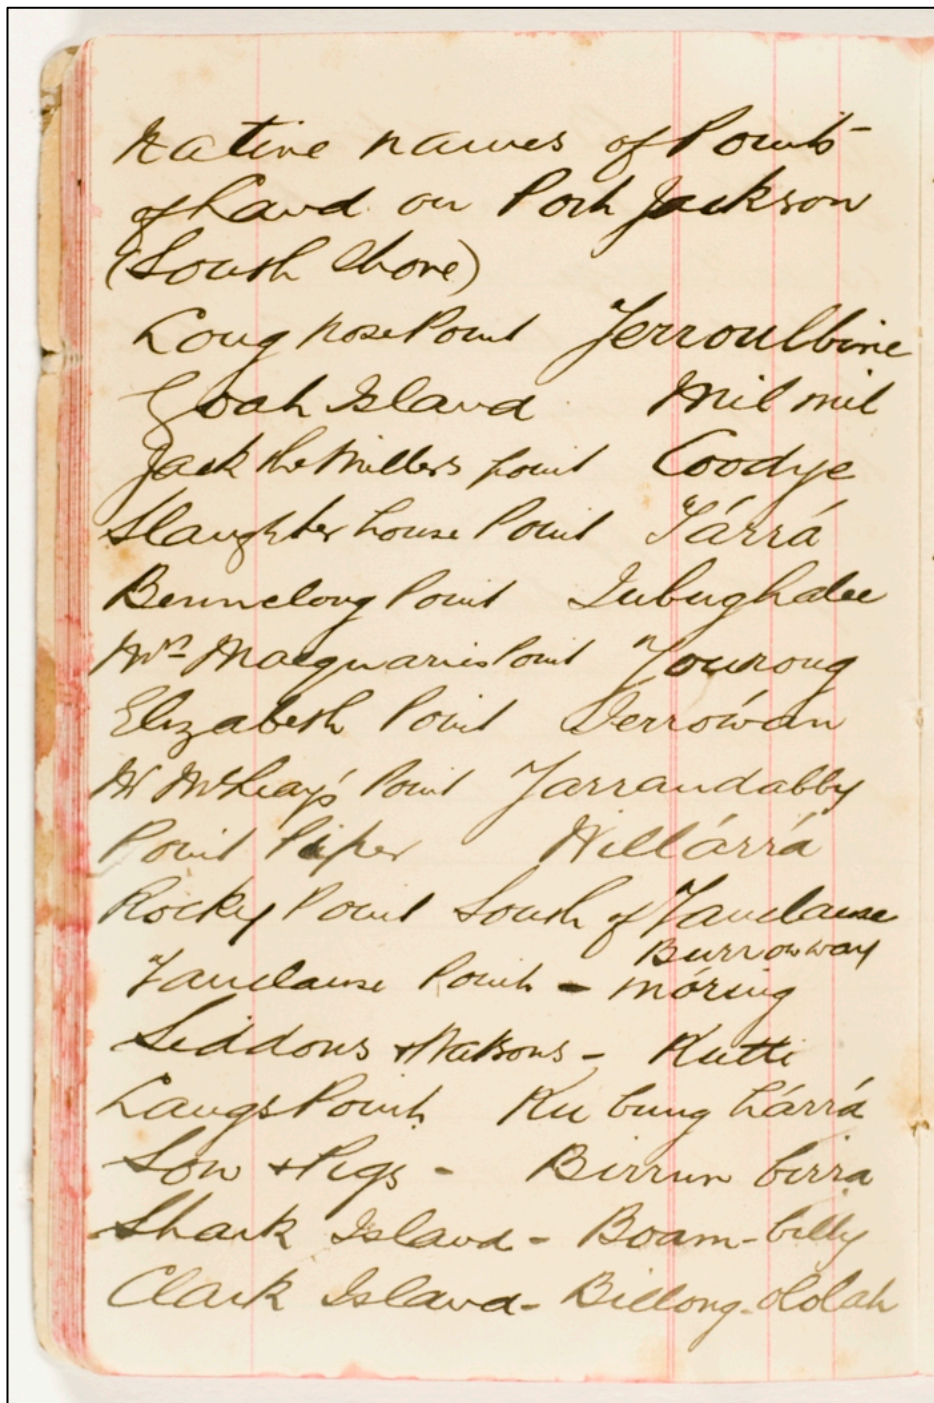 Native names of Points
of Land on Port Jackson
(South Shore)
Long nose Point Yerroulbine
Goat Island Milmil
Jack the Miller's point Coodye
Slaughter house Point Tárrá
Bennelong Point Jubughalee
Mrs Macquaries Point Yourong
Elizabeth Point Derrówan
Mr McLeay's Point Yarrandabby
Point Piper Willárrá
Rocky Point South of Vaucluse
Burrowway
Vaucluse Point - móring
Siddons & Watsons - Kutti
Langs Point Ku bung hárrá
Sow & Pigs - Birrun birra
Shark Island - Boam-billy
Clark Island - Billong-ololah